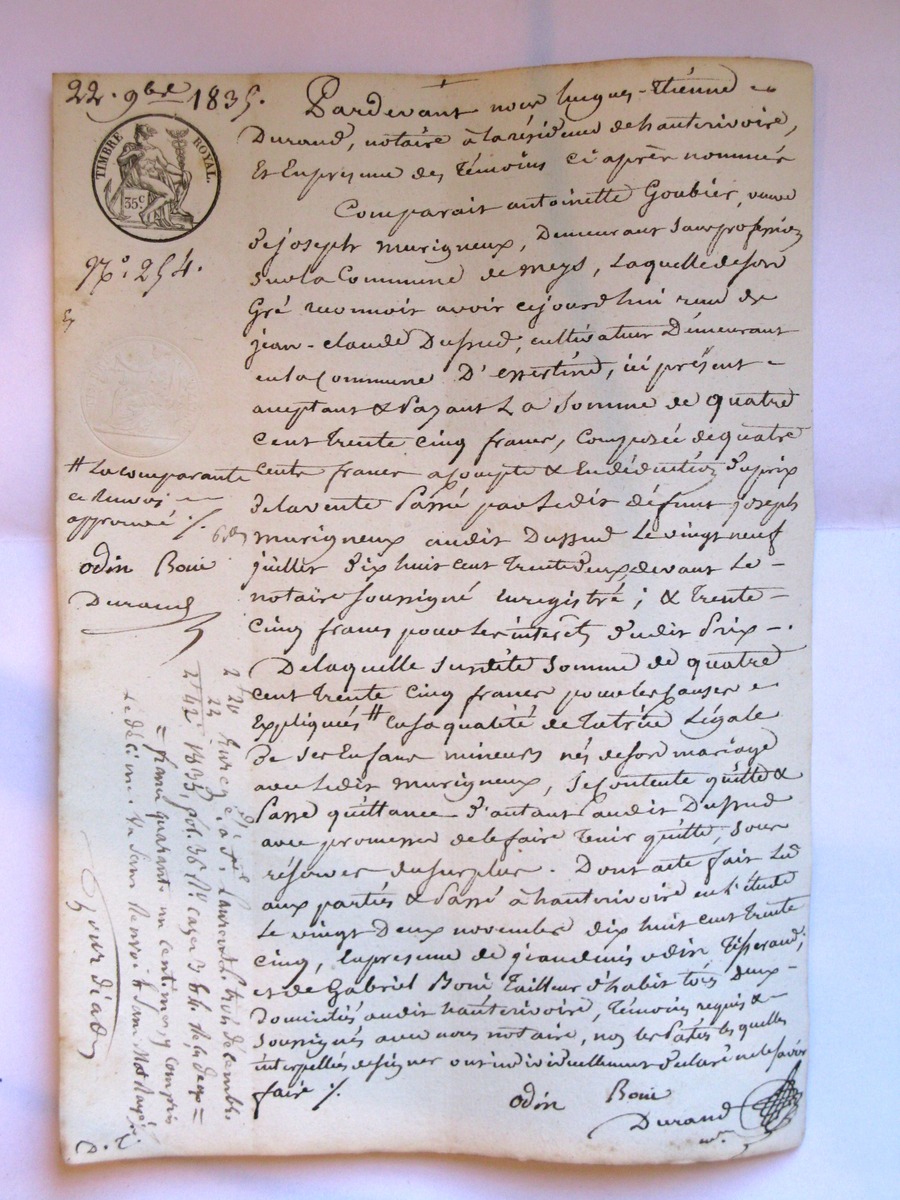 22. 9bre 1835.
TIMBRE ROYAL.
35c
N.o 254.
Pardevant nous hugues-Etiénne
Durand, notaire à la résidence de hauterivoire,
Et En présence des Témoins ci après nommés
Comparait antoinette Goubier, veuve
De joseph murigneux, Demeurant Sans profession
Sur la Commune de meys, Laquelle de son
Gré reconnoit avoir cejourd'hui reçu de
jean-claude Dussud, cultivateur Démeurant
en la Commune D'essertine, ici présent
acceptant & Payant La Somme de quatre
Cent trente cinq francs, Composée de quatre
Cents francs acompte & En déduction Du prix
De la vente Passé par Ledit défunt joseph
murigneux audit Dussud Le vingt neuf
juillet Dix huit cent trente deux, devant Le
notaire Soussigné Enregistré ; & trente
Cinq francs pour Les intérêts Dudit Prix.
De laquelle Susdite Somme de quatre
Cent trente Cinq francs pour les causes
Expliqués # En sa qualité de Tutrice Légale
De Ses Enfans mineurs nés de son mariage
avec Ledit murigneux, Se Contente quitte &
Passe quittance D'autant audit Dussud
avec promesse de le faire Tenir quitte, sous
réserves du surplus. Dont acte fait Lu
aux partiés & Passé à hauterivoire en l'étude
Le vingt Deux novembre dix huit cent trente
cinq, En présence de jean denis odin Tisserand,
et de Gabriel Boni Tailleur d'habits tous deux
Domiciliés audit hauterivoire, Témoins requis &
Soussignés avec nous notaire, non les Parties lesquelles
interpellées de signer ont individuellement Déclaré ne le savoir
faire ./.
odin Boni
Durand
# La comparante
ce renvoi
approuvé ./.
odin Boni
Durand
Enreg. à St. Laurent le trois décembre
1835, fol. 36 Ro. cases 3
franc quarante un centimes, y compris
le décime. Un Seul Renvoi & Sans Mot Rayé